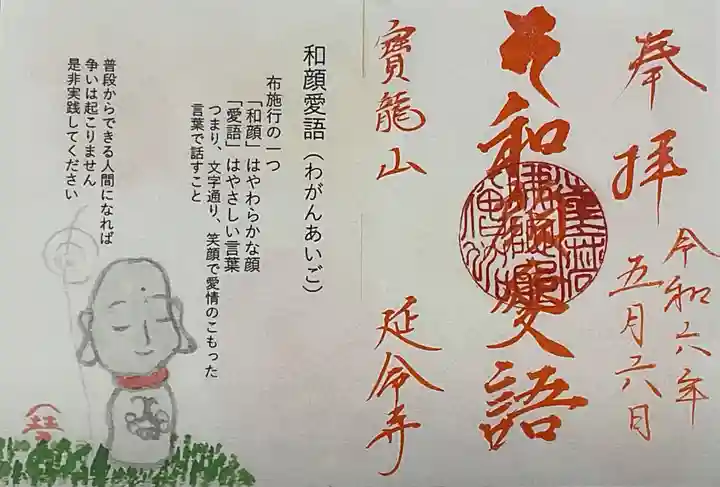 奉拝
令和六年
五月六日
和顔愛語
寶龍山
延命寺
和顔愛語(わがんあいご)
布施行の一つ
「和顔」はやわらかな顔
「愛語」はやさしい言葉
つまり、文字通り、笑顔で愛情のこもった
言葉で話すこと
普段からできる人間になれば
争いは起こりません
是非実践してください